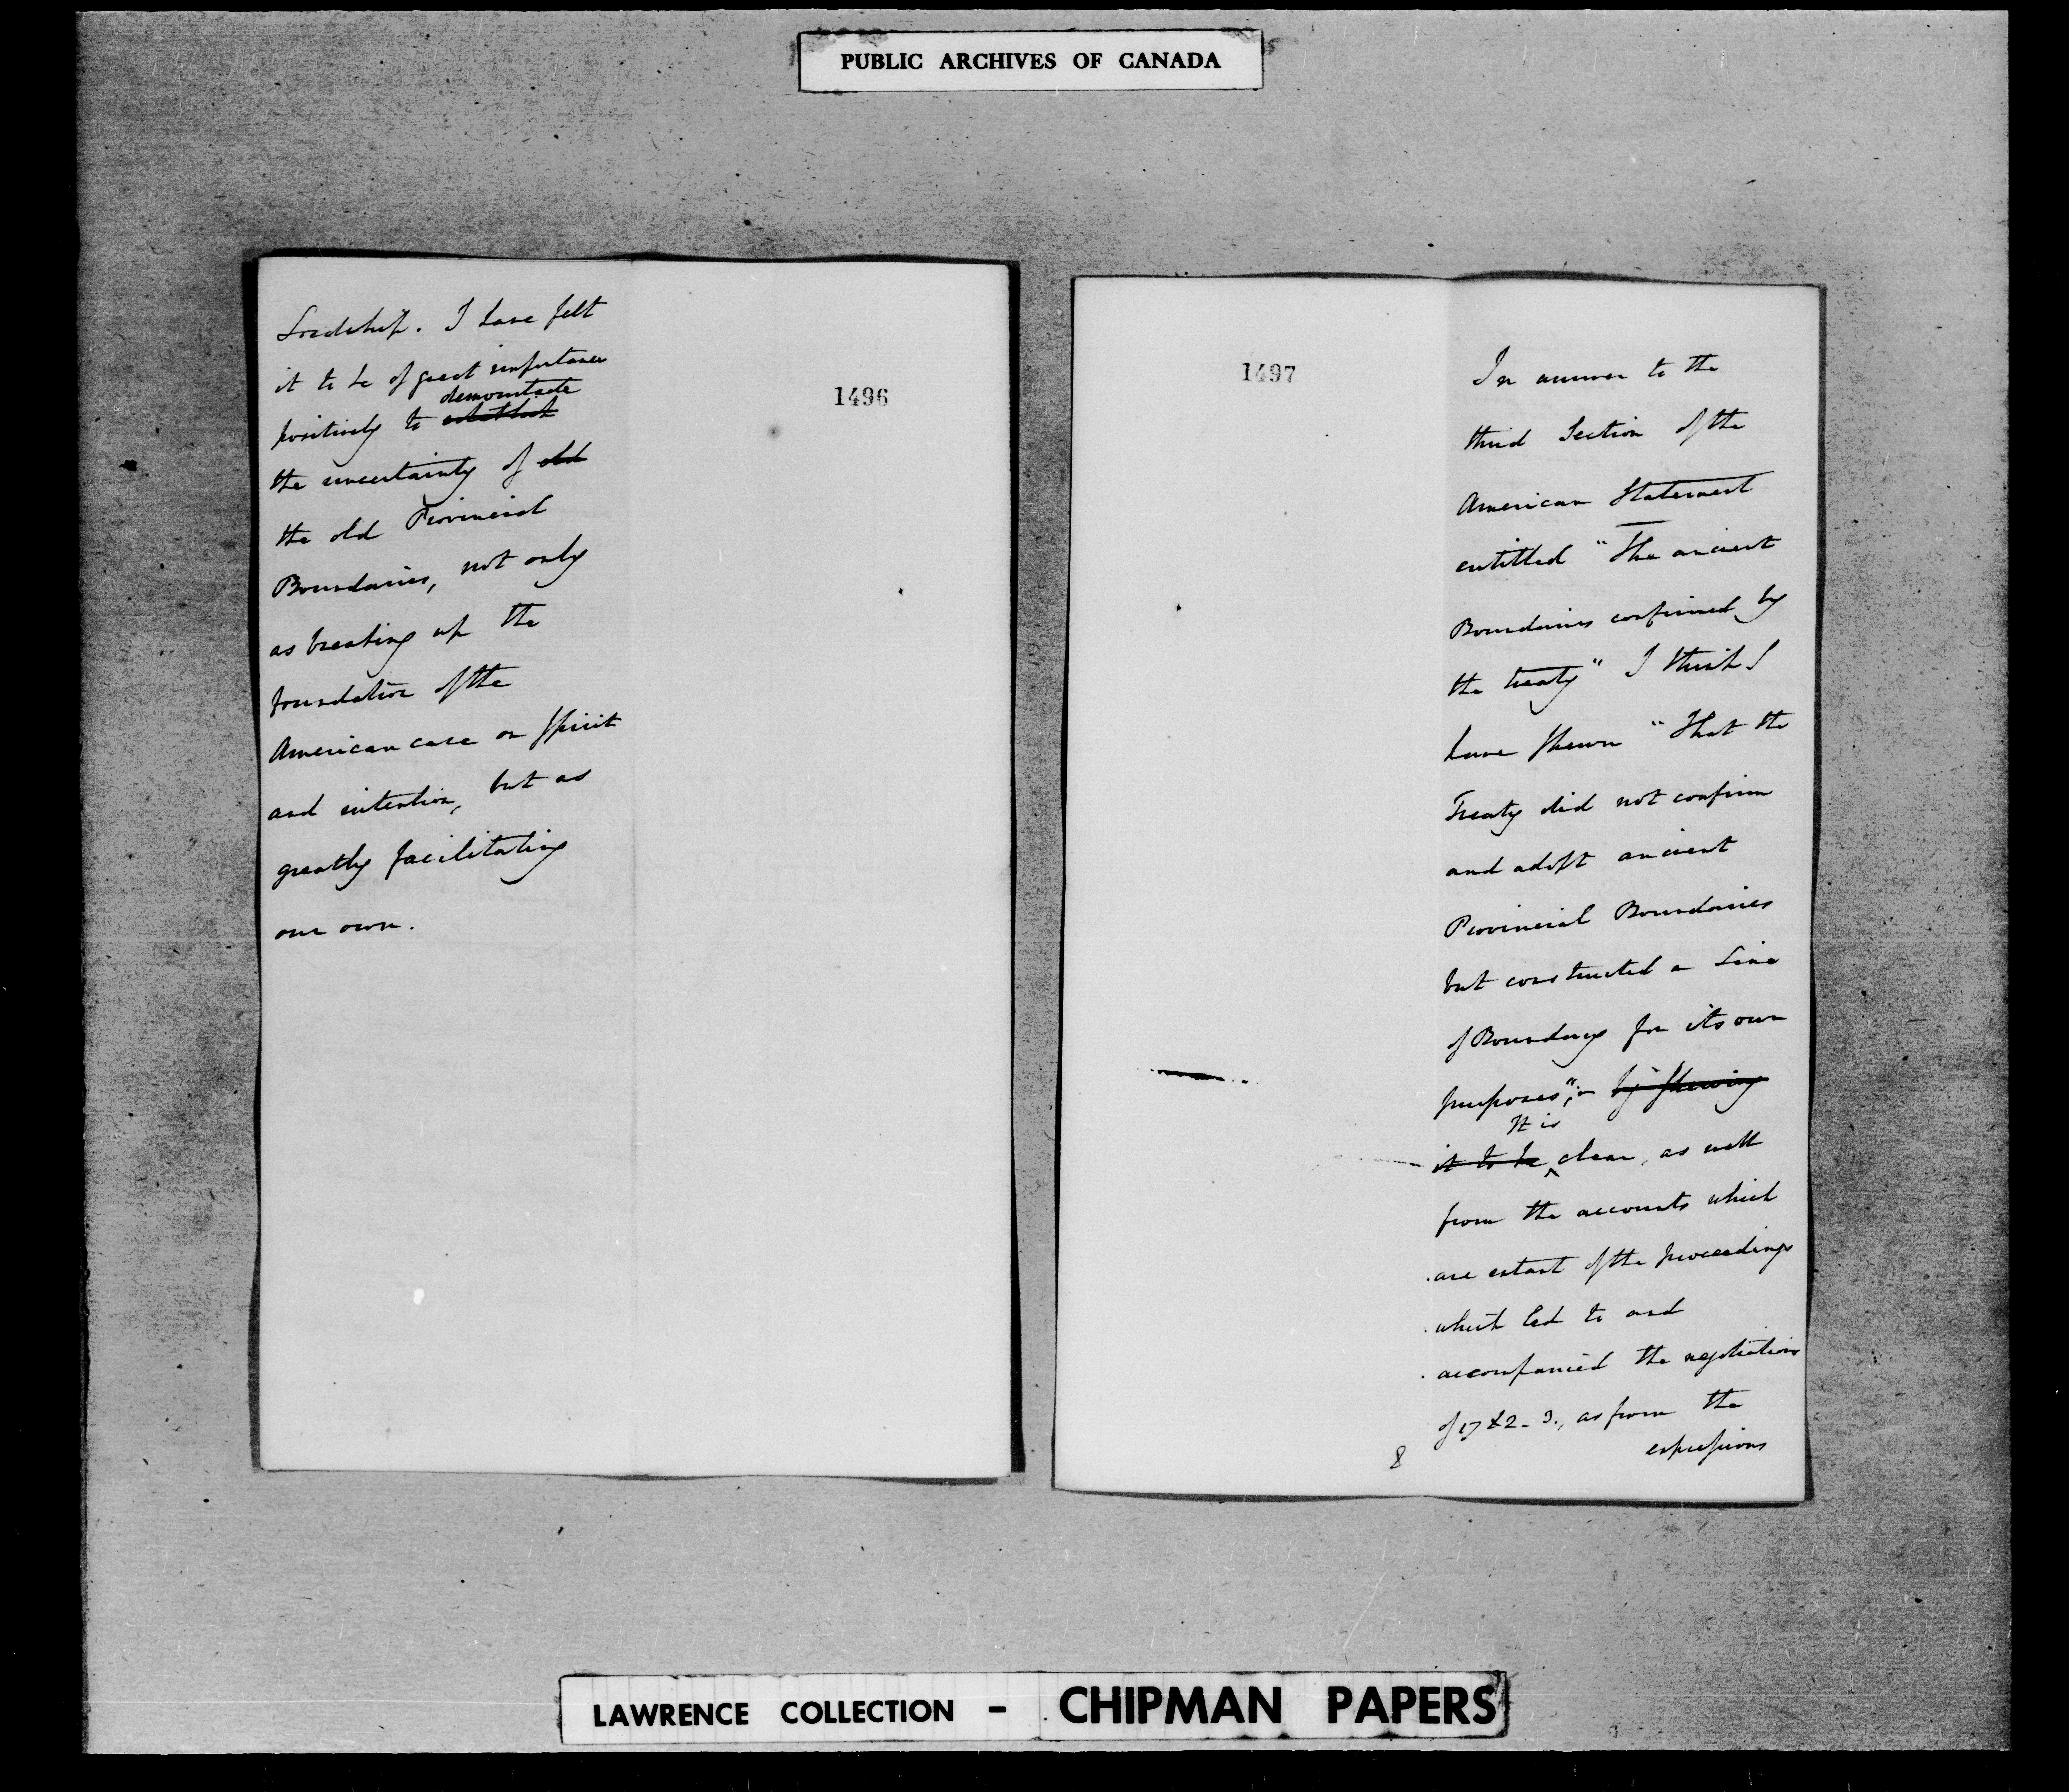 PUBLIC ARCHIVES OF CANADA
Lordship. I have felt
it to be of great importance
demonstrate
positively to establish
the uncertainty of old
the old Provincial
Boundaries, not only
as breaking up the
foundation of the
American case on Spirit
and intention, but as
greatly facilitating
our own.
1496
1497
In answer to the
third Section of the
American Statement
entitled "The ancient
Boundaries confirmed by
the treaty" I think I
have shewn "That the
Treaty did not confirm
and adopt ancient
Provincial Boundaries
but constructed a Line
of Boundary for its own
purposes"; - by shewing
It is
it to be clear, as well
from the accounts which
are extant of the proceedings
which led to and
accompanied the negotiations
of 1782-3., as from the
expressions
8
LAWRENCE COLLECTION - CHIPMAN PAPERS